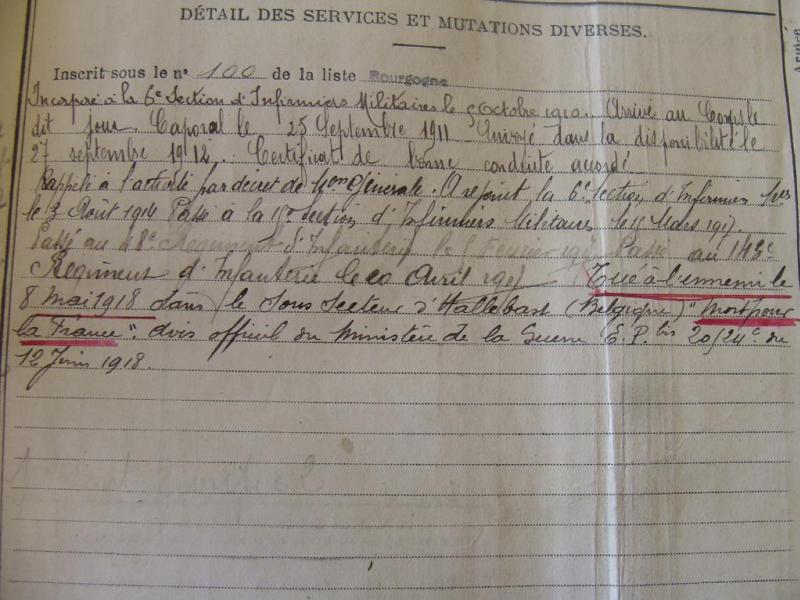 DÉTAIL DES SERVICES ET MUTATIONS DIVERSES.
Inscrit sous le n° 100 de la liste Bourgogne
Incorporé à la 6e Section d'Infirmiers Militaires le Octobre 1910. Arrivé au Corps le
dit jour. Caporal le 25 Septembre 1911 Envoyé dans la disponibilité le
27 septembre 1912. Certificat de bonne conduite accordé
Rappelé à l'activité par décret de Mon Générale. A rejoint la 6e Section d'Infirmiers Mres
le 3 Août 1914 Passé à la Section d'Infirmiers Militaires le Mars 1917.
Passé au 48e Régiment d'Infanterie le Février Passé au 143e
Régiment d'Infanterie le Avril Tué à l'ennemi le
8 mai 1918 dans le Sous Secteur d'Hallebast (Belgique) "Mort pour
la France". Avis officiel du Ministère de la Guerre E.P. bis 20/24c du
12 Juin 1918.